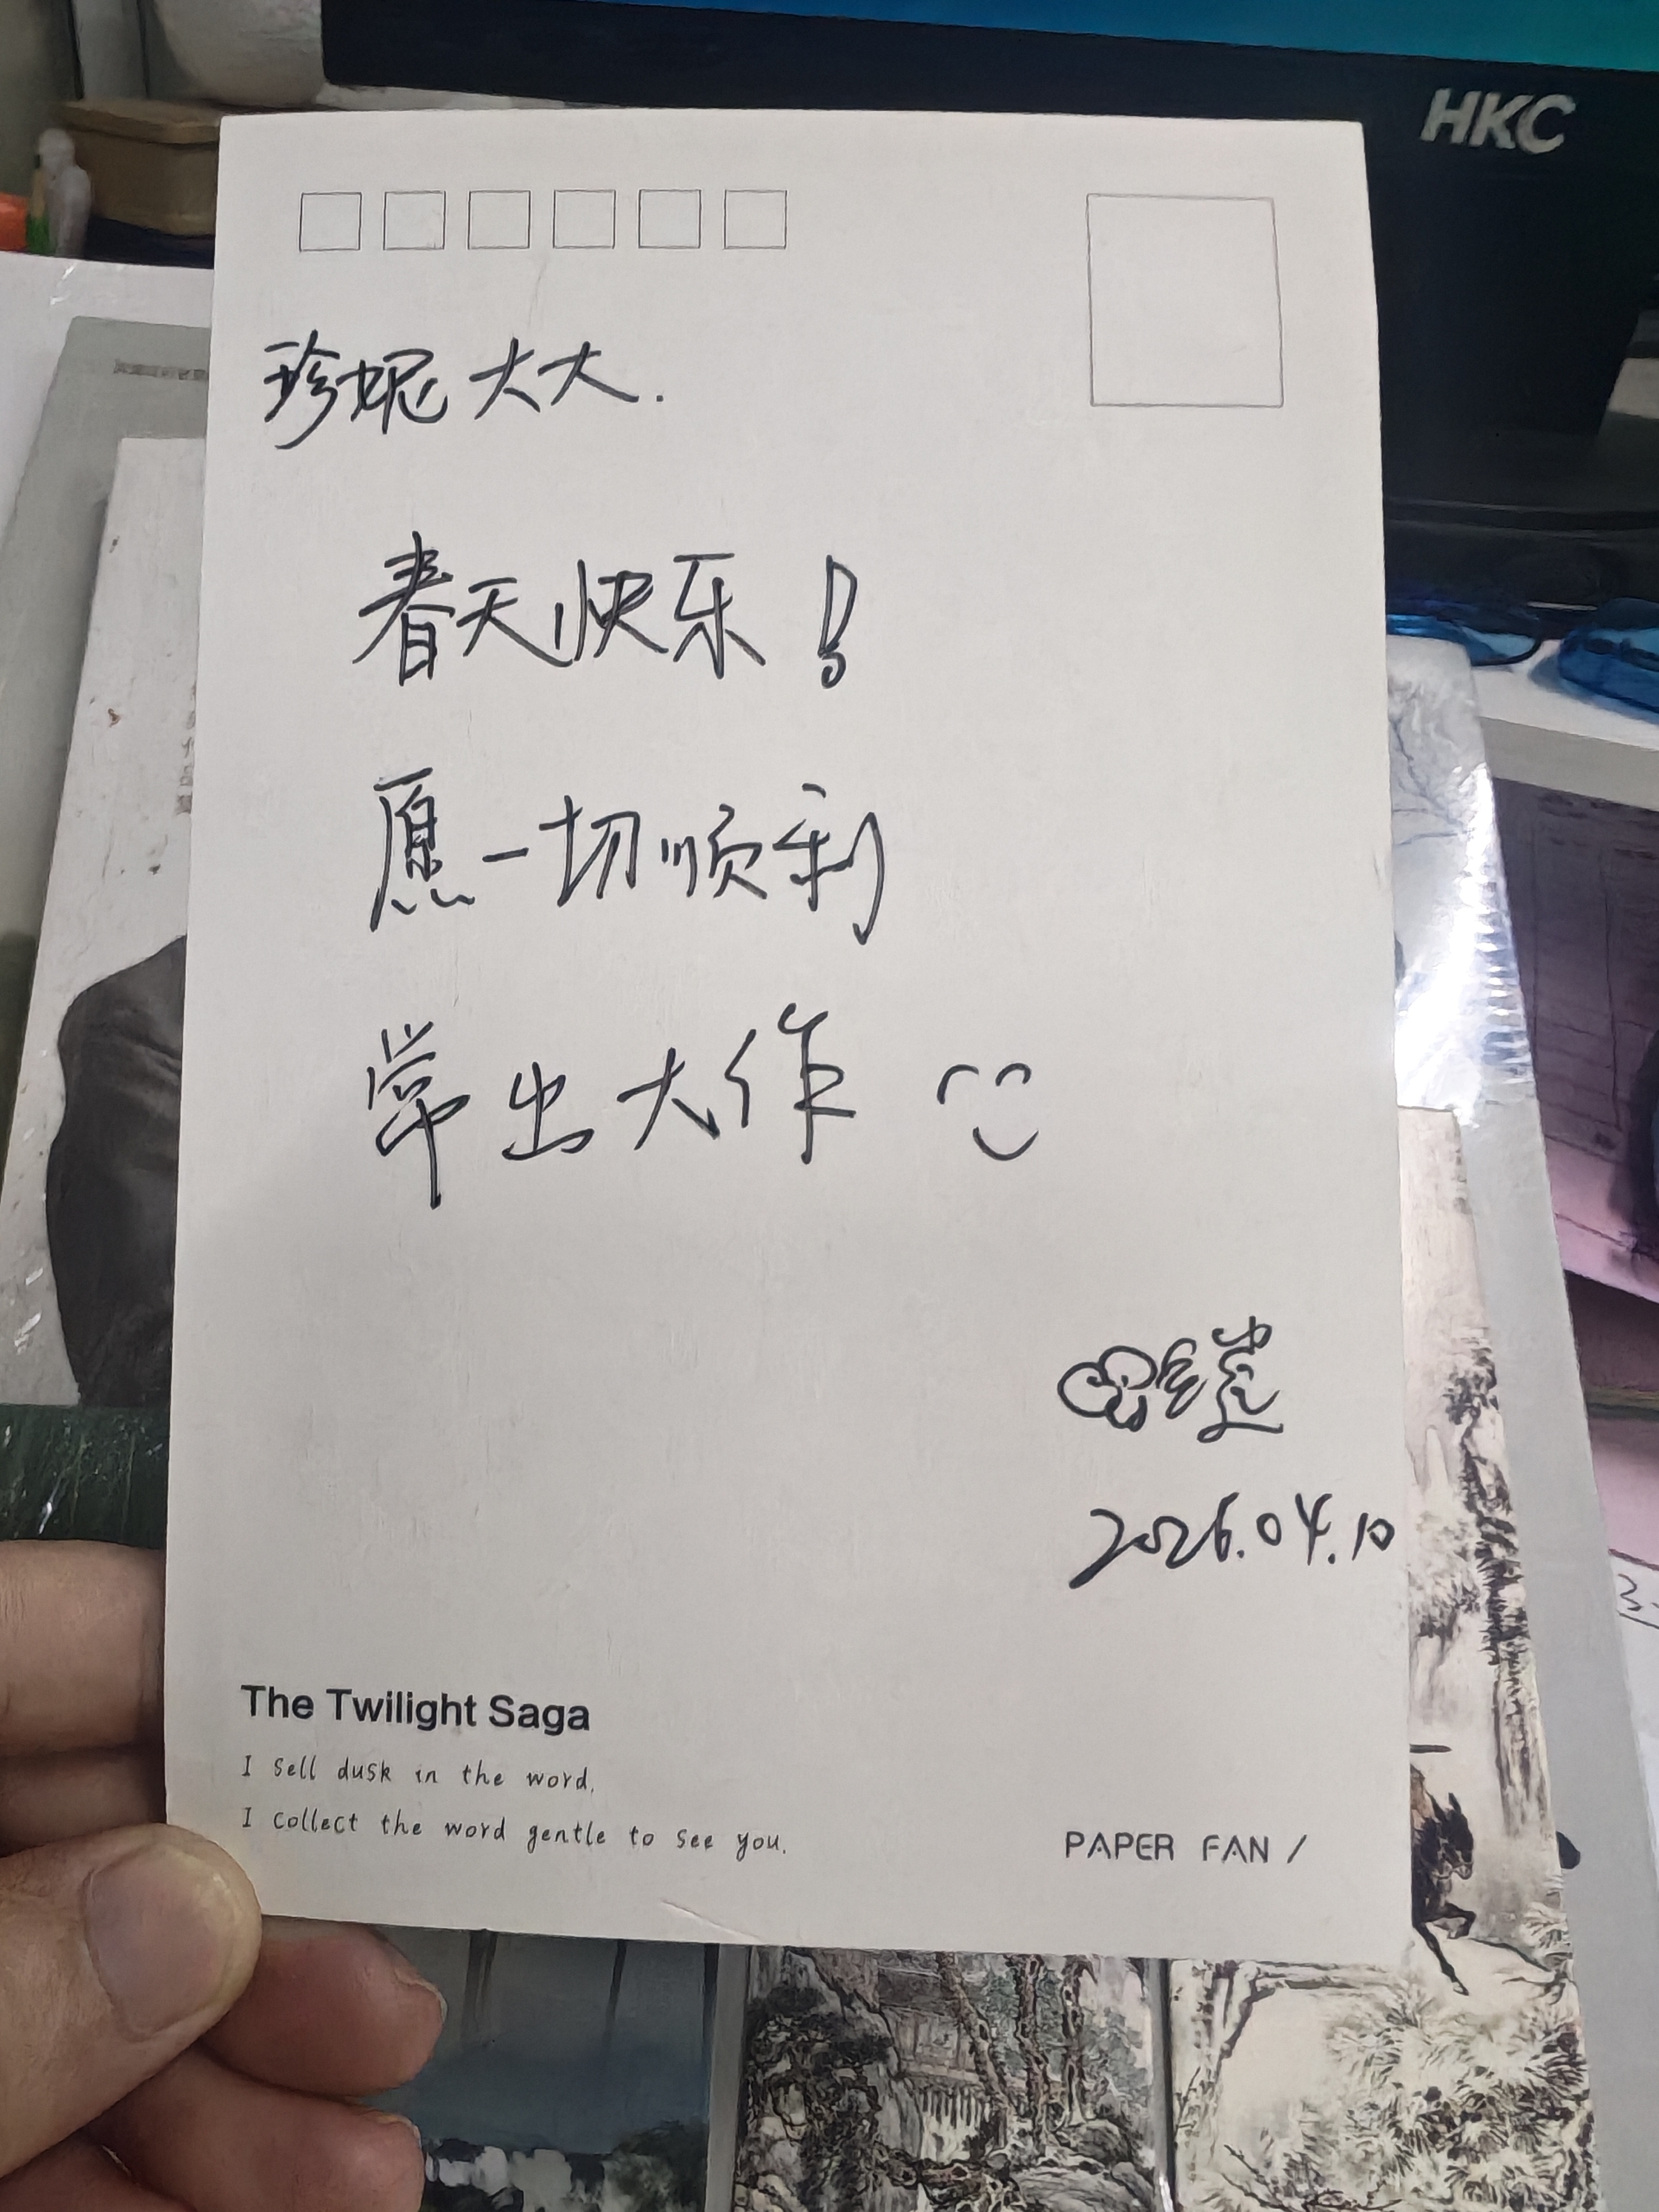 HKC
珍妮大大.
春天快乐!
愿一切顺利
常出大作
2026.04.10
The Twilight Saga
I sell dusk in the word,
I collect the word gentle to see you.
PAPER FAN /